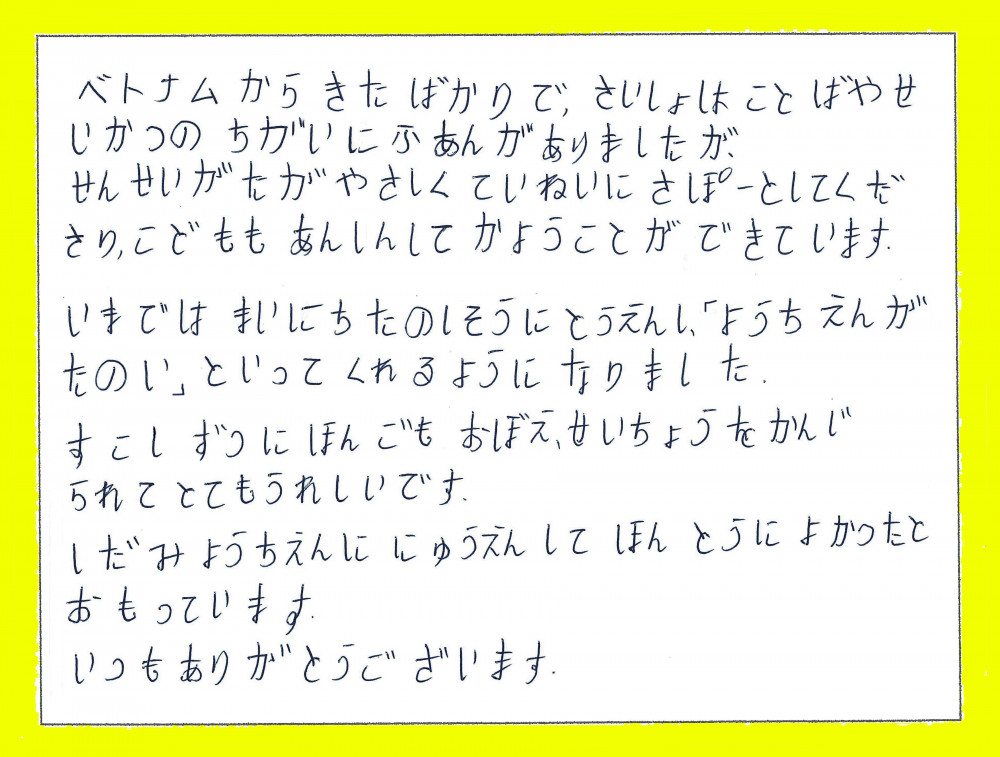 ベトナムからきたばかりで、さいしょはことばやせ
じかつのちがいにふあんがありましたが、
せんせいがたがやさしくていねいにさぽーとしてくだ
さり、こどももあんしんしてかようことができています.
いまではまいにちたのしそうにとうえんし、「ようちえんが
たのい」といってくれるようになりました.
すこしずつにほんごもおぼえ、せいちょうをかんじ
られてとてもうれしいです.
しだみようちえんににゅうえんしてほんとうによかったと
おもっています.
いつもありがとうございます.